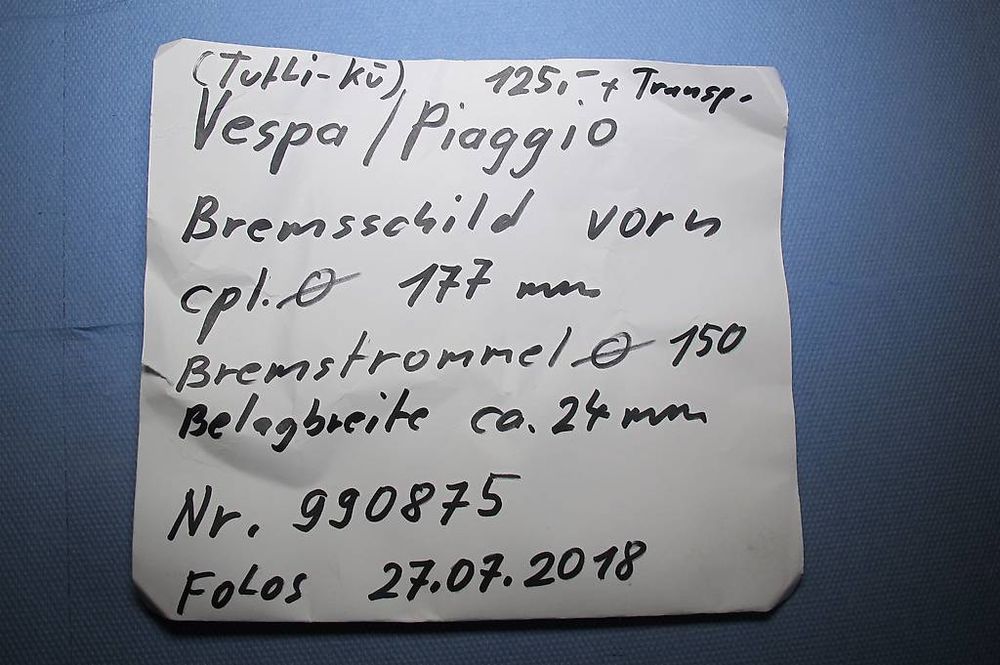 (Tutti-kü) 125,- + Transp.
Vespa / Piaggio
Bremsschild vorn
cpl. Ø 177 mm
Bremstrommel Ø 150
Belagbreite ca. 24 mm
Nr. 990875
Fotos 27.07.2018